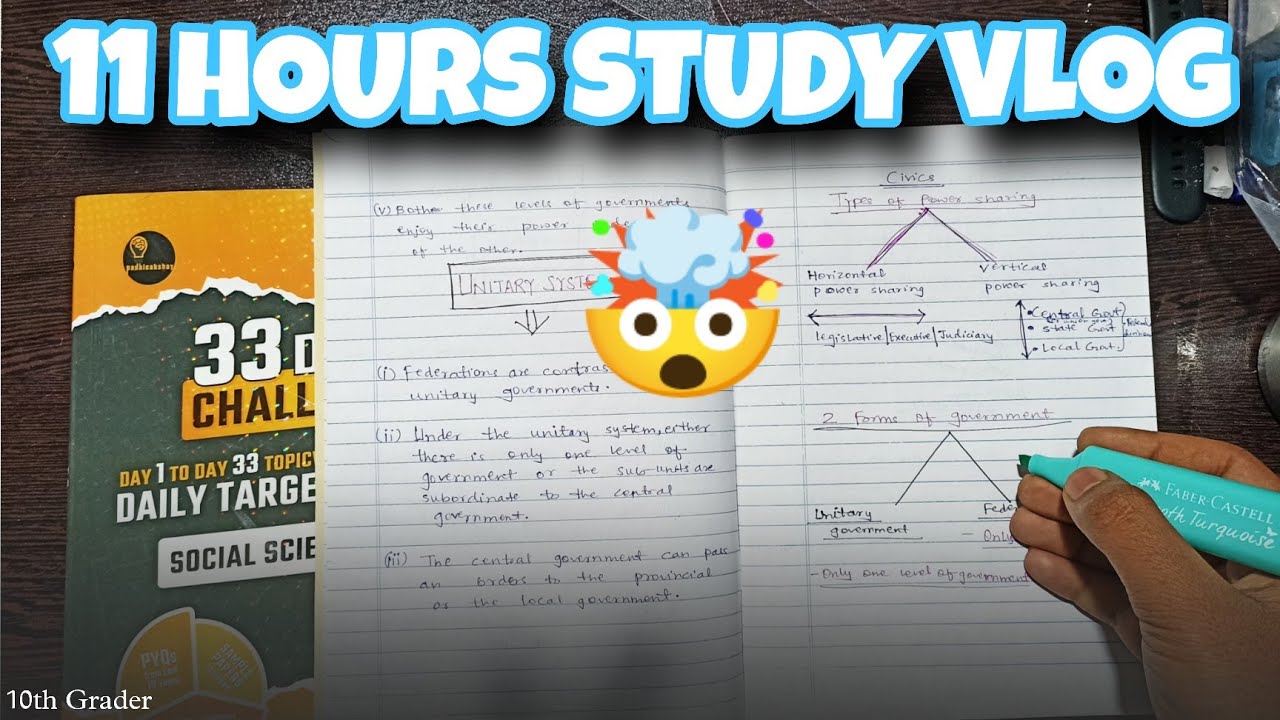 11 HOURS STUDY VLOG
padhleakshay
33 D
CHALL
DAY 1 TO DAY 33 TOPIC
DAILY TARGE
SOCIAL SCIE
PYQs
SAMPLE
PAPER
(v) Bothe these levels of governments
enjoy their power
of the other.
UNITARY SYSTE
(i) Federations are contras
unitary governments.
(ii) Under the unitary system, either
there is only one level of
government or the sub-units are
subordinate to the central
government.
(iii) The central government can pass
an orders to the provincial
or the local government.
Civics
Types of Power sharing
Horizontal
power sharing
Vertical
power sharing
Legislative/Executive/Judiciary
Central Govt
State Govt
Local Govt.
2 Forms of government
Unitary
government
Feder
- Only
- Only one level of government
FABER-CASTELL
Turquoise
10th Grader